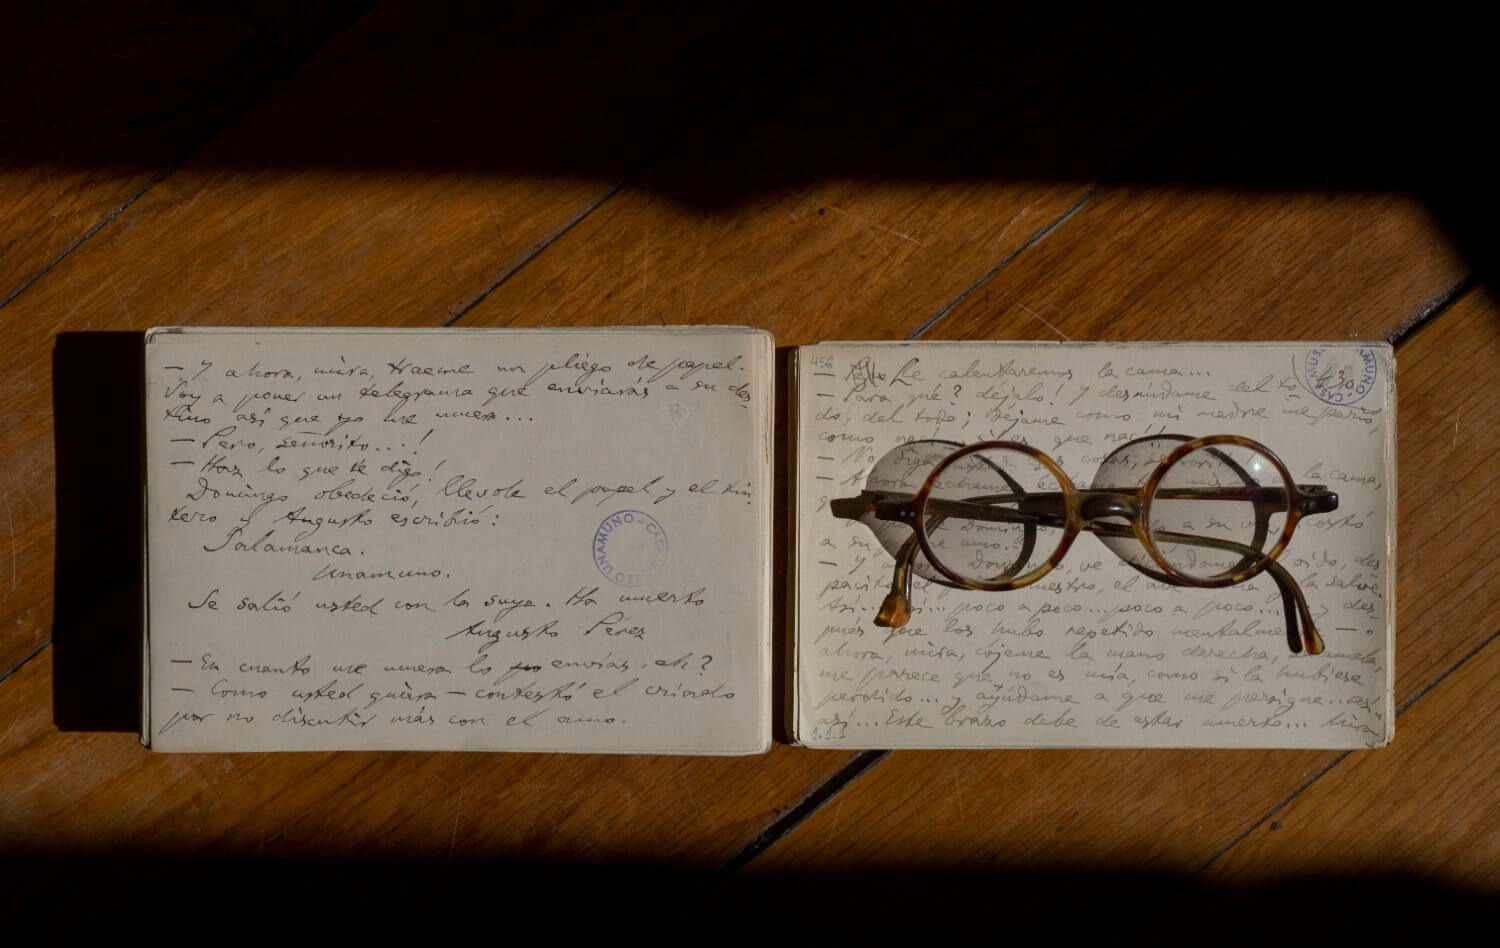 — Y ahora, mira, traeme un pliego de papel.
Voy a poner un telegrama que enviarás a su des-
tino así que yo me muera...
— Pero, señorito...!
— Haz lo que te digo!
Domingo obedeció, llevole el papel y el tin-
tero y Augusto escribió:
Salamanca.
Unamuno.
Se salió usted con la suya. He muerto
Augusto Pérez
— En cuanto me muera lo envías, eh?
— Como usted quiera — contestó el criado
por no discutir más con el amo.
CASA MUSEO UNAMUNO
456
— Le calentaremos la cama...
— Para qué? déjalo! Y desnúdame del to-
do, del todo; déjame como mi madre me parió,
como nací, si es que nací!
— No diga usted esas cosas, señorito!
— Ahora échame, la cama,
Domingo, a su vez, costó
a su amo.
— Y ahora, Domingo, ve al oído, des-
pacito, el padrenuestro, el ave maría y la salve.
Así... así... poco a poco... poco a poco... y des-
pués que los hubo repetido mentalmente: —
ahora, mira, cójeme la mano derecha, sácamela,
me parece que no es mía, como si la hubiese
perdido... y ayúdame a que me persigne... así..
así... Este brazo debe de estar muerto... Mira
1.1.1
CASA MUSEO UNAMUNO